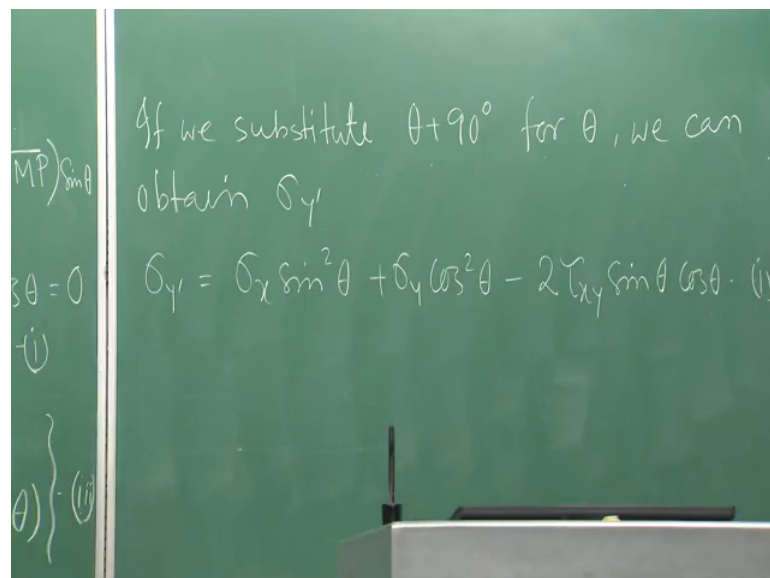 MP) Sinθ
sθ = 0
-(i)
θ) } - (iii)
If we substitute θ+90° for θ, we can
obtain σy'
σy' = σx Sin²θ + σy Cos²θ - 2τxy Sinθ Cosθ.